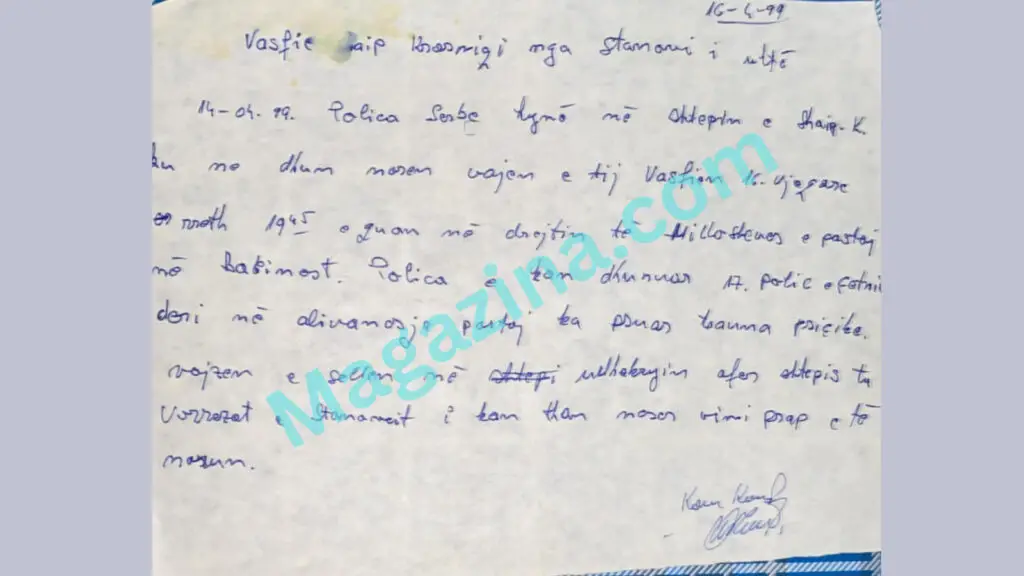 16-4-99
Vasfie aip Krasniqi nga Stanovci i ultë
14-04.99. Polica Serbe hynë në shtepin e Shaip. K.
ku me dhun marrin vajzen e tij Vasfien 16. vjeqare
e rreth 1945 e quan në drejtim të Milloshevës e pastaj
në Babimost. Polica e kan dhunuar 17. polic
deri në alivanosje pastaj ka psuar trauma psiqike.
vajzen e sellen në shtepi udhëkryqin afer shtepis tu
Vorrezat e Stanovcit i kan than neser vimi prap e të
marrum.
Magazina.com